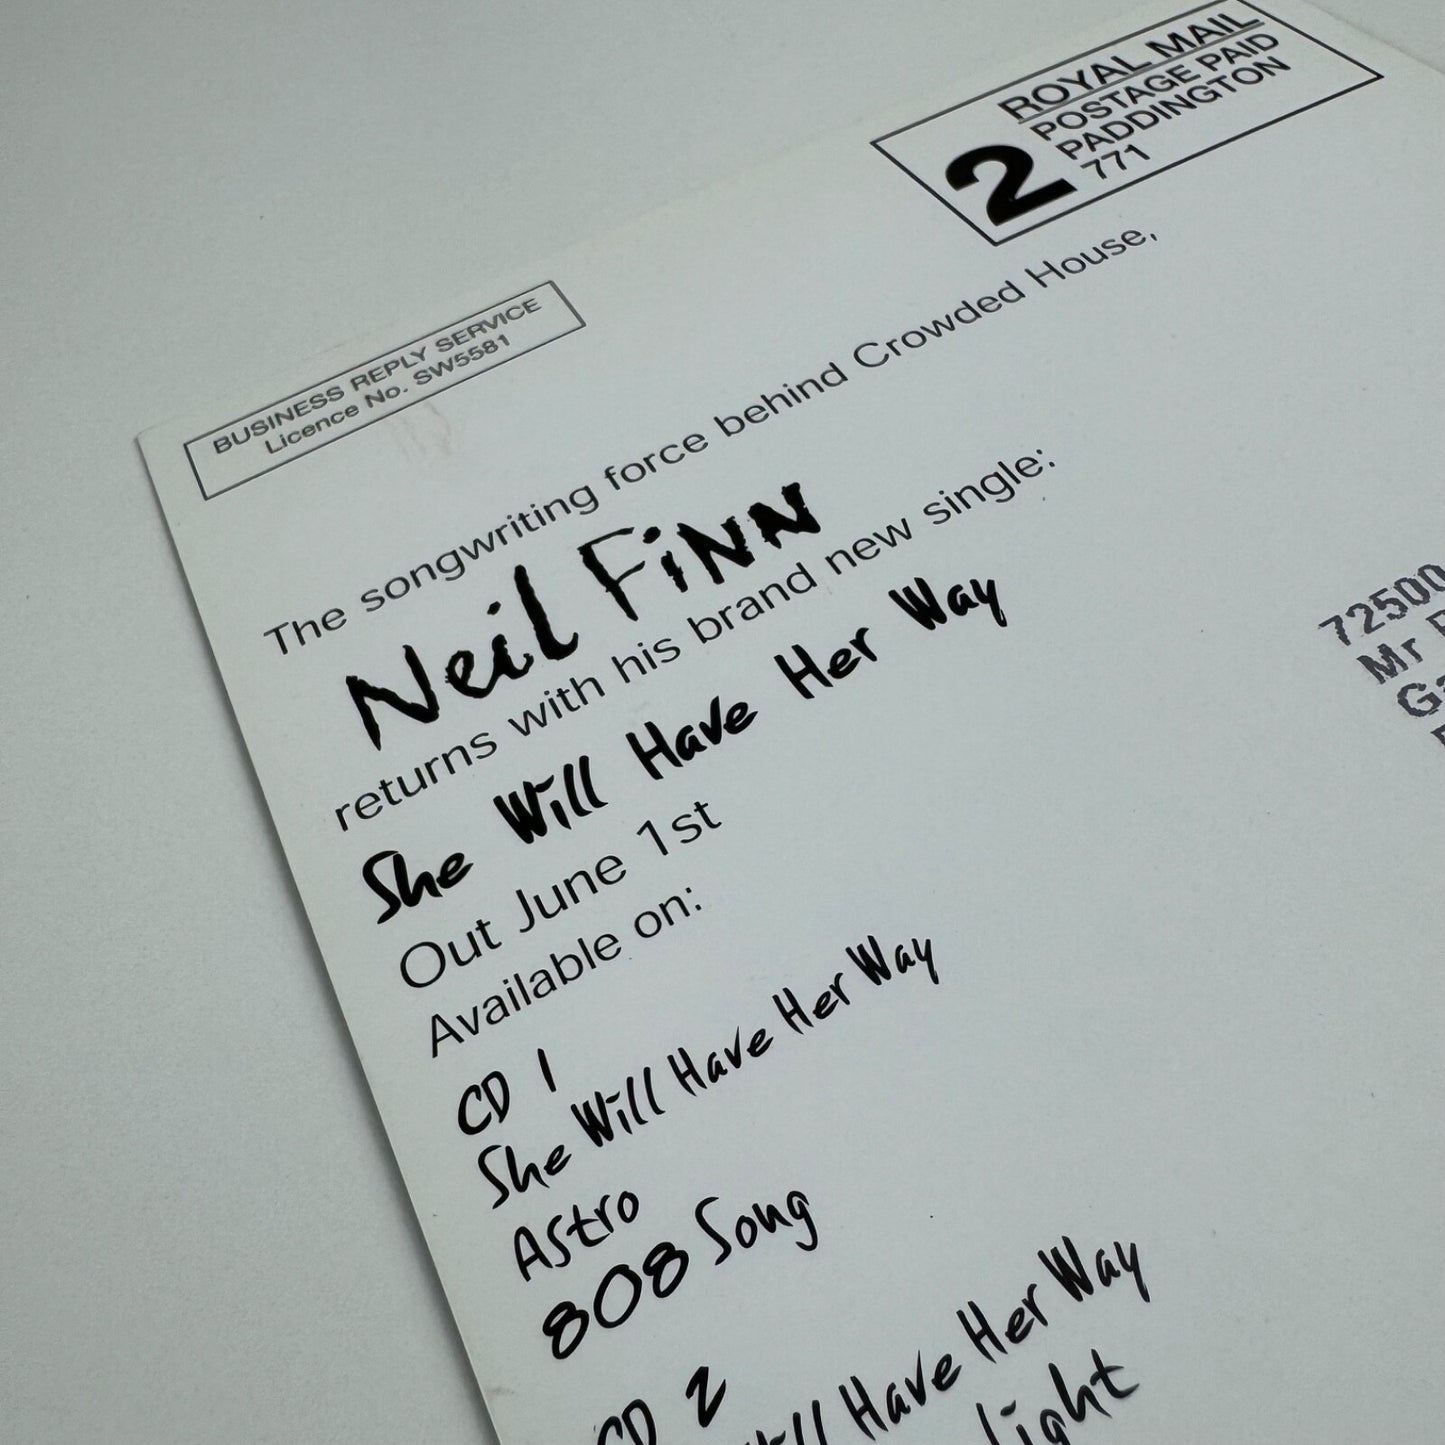 ROYAL MAIL
POSTAGE PAID
PADDINGTON
771
2
BUSINESS REPLY SERVICE
Licence No. SW5581
The songwriting force behind Crowded House,
Neil Finn
returns with his brand new single:
She Will Have Her Way
Out June 1st
Available on:
CD 1
She Will Have Her Way
Astro
808 Song
CD 2
Will Have Her Way
light
72500
Mr